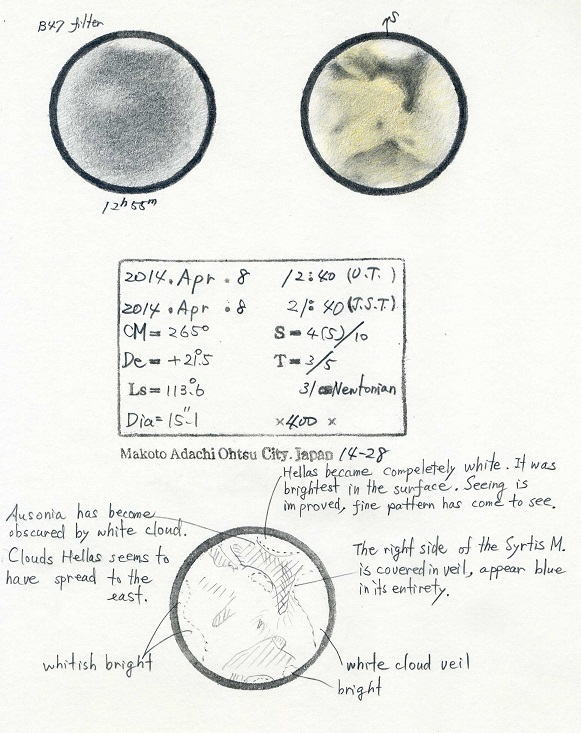 B47 filter
S
12h 55m
2014. Apr. 8 12:40 (U.T.)
2014. Apr. 8 21:40 (J.S.T.)
CM= 265° S= 4(5)/10
De= +21.°5 T= 3/5
Ls= 113.°6 31 cm Newtonian
Dia= 15."1 ×400 ×
Makoto Adachi Ohtsu City. Japan 14-28
Hellas became compeletely white. It was
brightest in the surface. Seeing is
improved, fine pattern has come to see.
Ausonia has become
obscured by white cloud.
Clouds Hellas seems to
have spread to the
east.
The right side of the Syrtis M.
is covered in veil, appear blue
in its entirety.
whitish bright
white cloud veil
bright